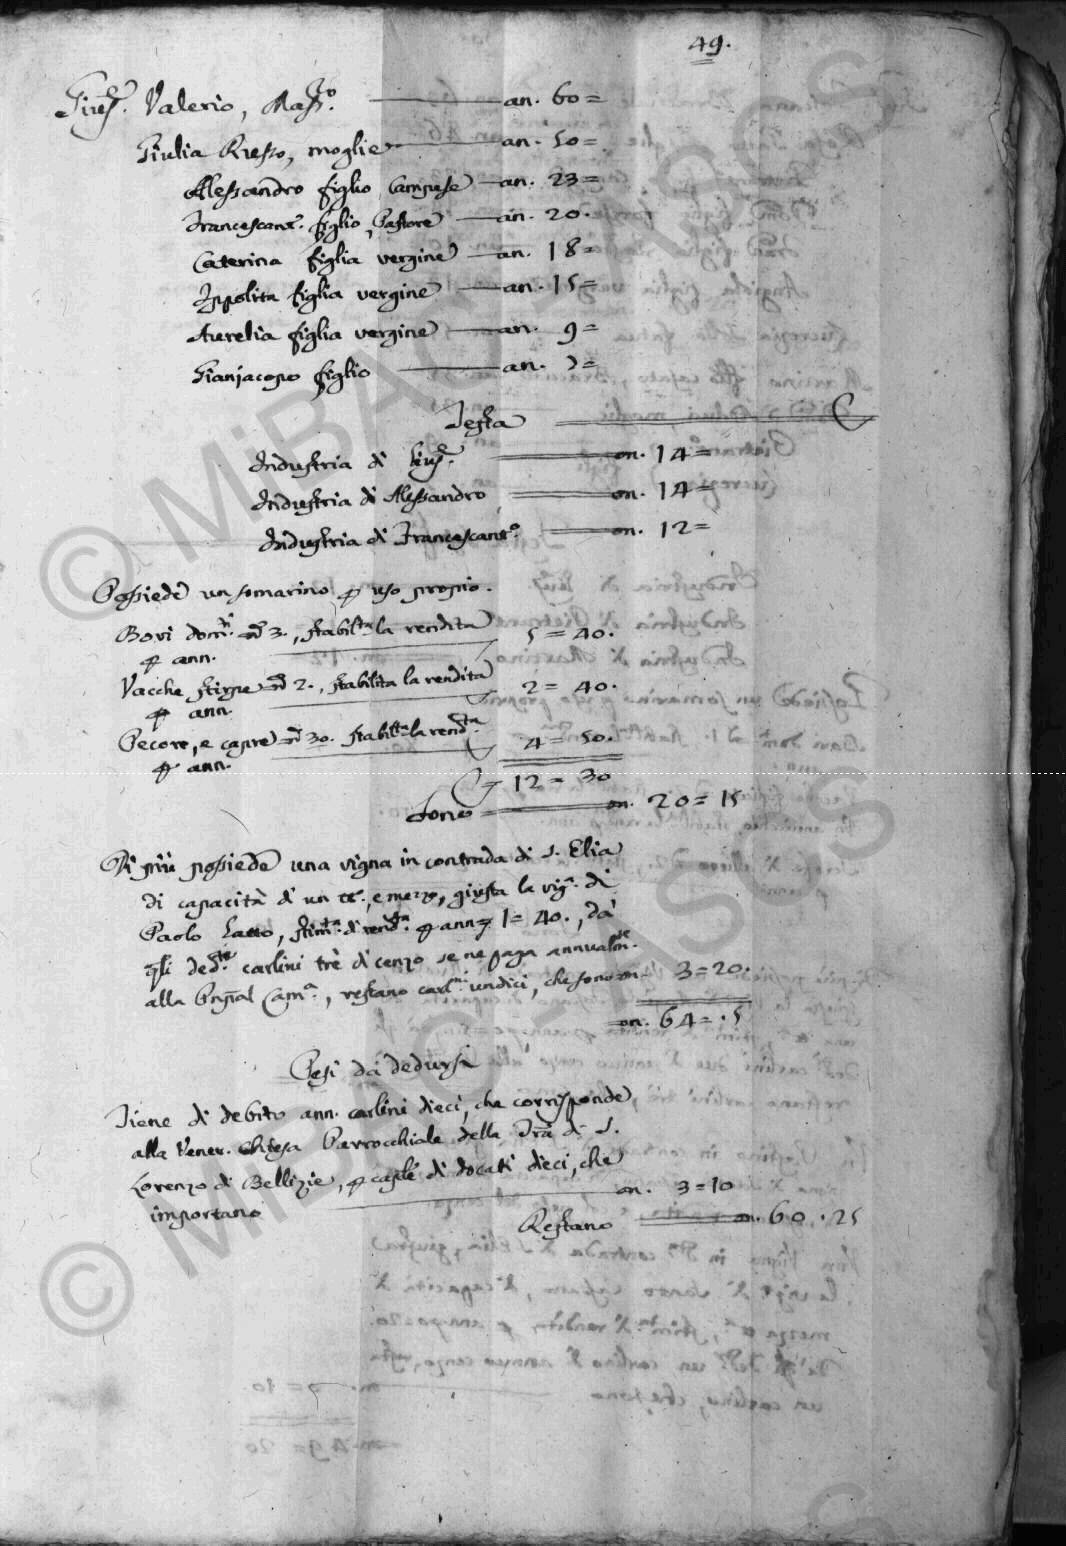 49.
Gius.e Valerio, Mass.ro an. 60=
Giulia Russo, moglie an. 50=
Alessandro figlio Campese an. 23=
Francescant.o figlio, Pastore an. 20.
Caterina figlia vergine an. 18=
Ippolita figlia vergine an. 15=
Aurelia figlia vergine an. 9=
Gianjacopo figlio an. 7=
Testa
Industria di Gius.e on. 14=
Industria di Alessandro on. 14=
Industria di Francescant.o on. 12=
Possiede un somarino p uso proprio.
Bovi dom.ti n.o 3., stabil.ta la rendita 5=40.
p ann.
Vacche stirpe n.o 2., stabilita la rendita 2=40.
p ann.
Pecore, e capre n.o 30. stabil.ta la rend.ta 4=50.
p ann.
12=30
sono on. 20=15
Di più possiede una vigna in contrada di S. Elia
di capacità d'un , e mezzo, giusta la vig.a di
Paolo , stim.ta di rend.ta p ann. 1=40., da
q.li ded.te carlini trè di cenzo se ne paga annualm.te
alla Cam.a, restano carl.ni undici, che sono on. 3=20.
on. 64=.5
Pesi da dedursi
Tiene di debito ann. carlini dieci, che corrisponde
alla Vener. Chiesa Parrocchiale della Trà di S.
Lorenzo di Bellizie, p cap.le di docati dieci, che
importano on. 3=10
Restano on. 60.25
© MiBAC - ASCS
© MiBAC - ASCS